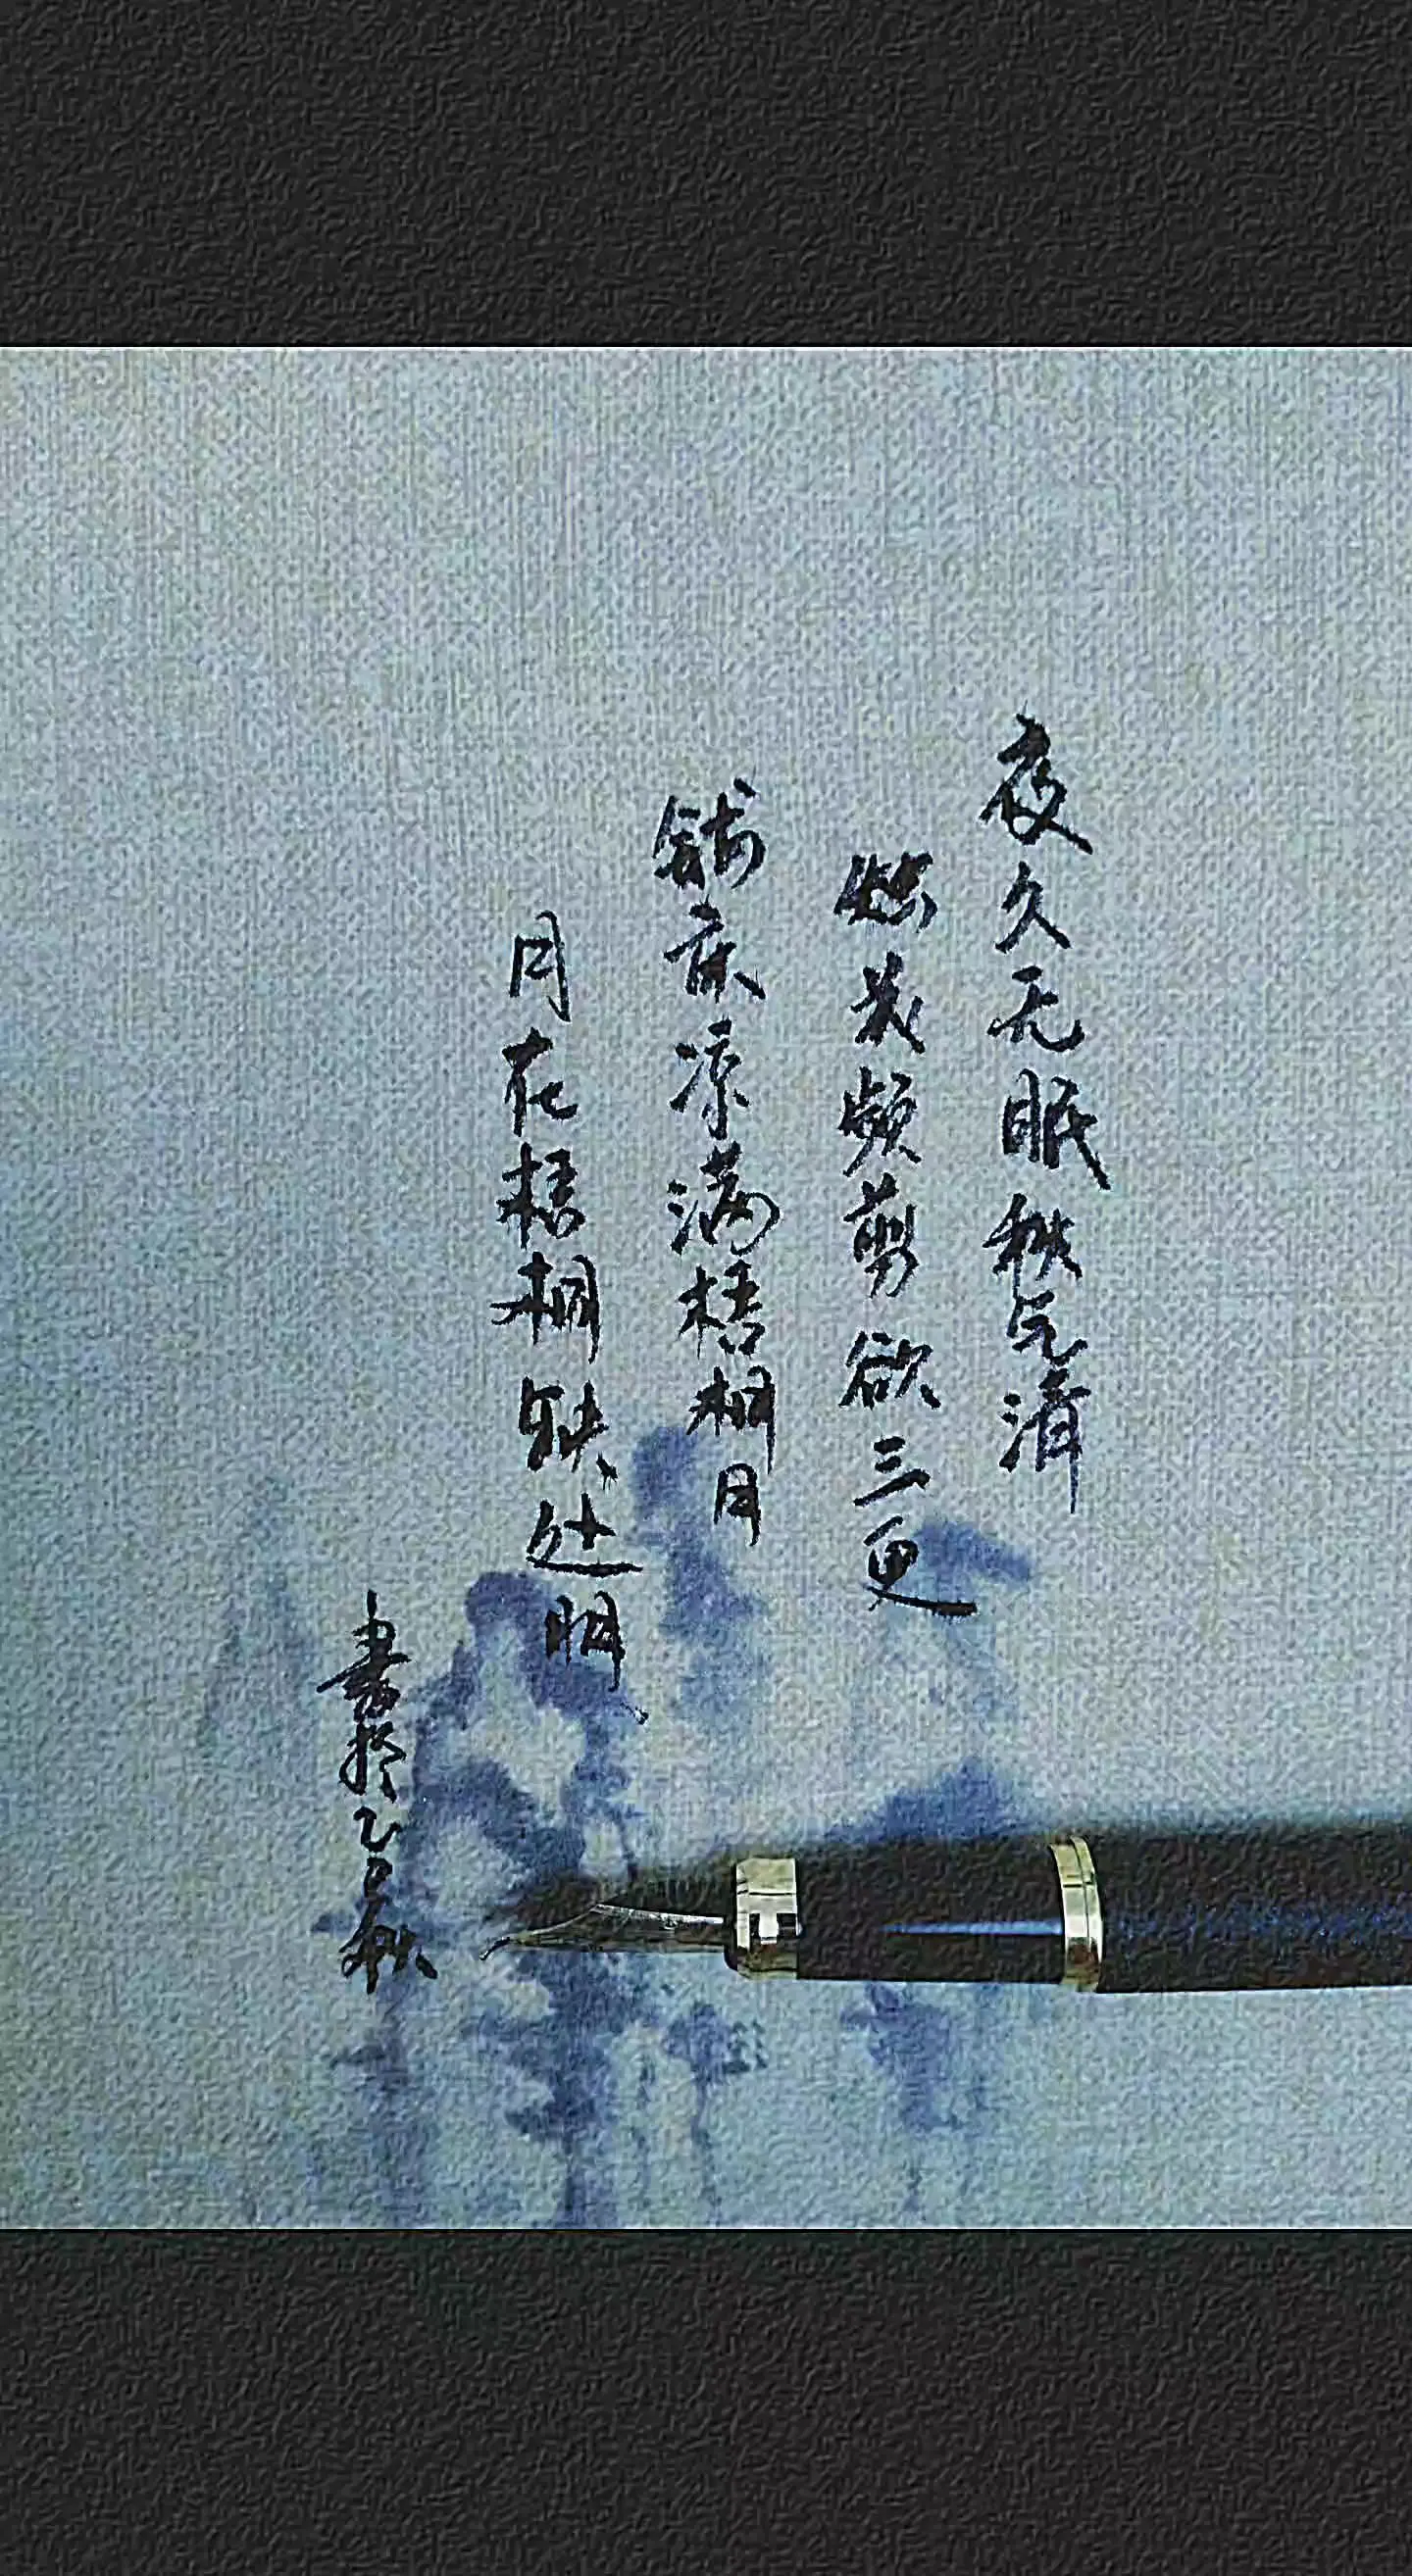 夜久无眠秋气清
烛花频剪欲三更
铺床凉满梧桐月
月在梧桐缺处明
書於乙巳秋